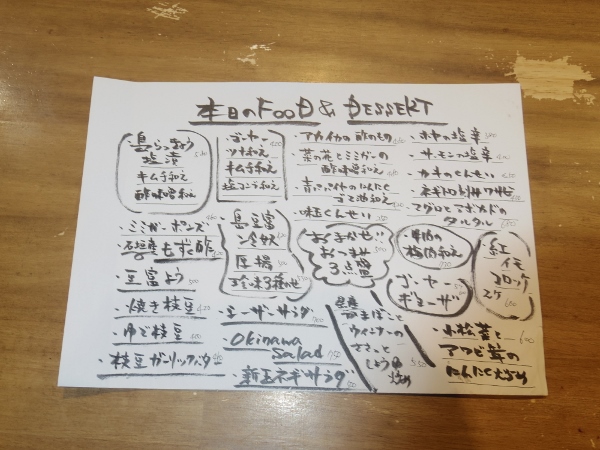 本日のFOOD & DESSERT
島らっきょう
塩漬
キムチ和え
酢味噌和え
ゴーヤー
ツナ和え
キムチ和え
塩コンブ和え
・アカイカの酢のもの
・菜の花とミミガーの
酢味噌和え
・青パパイヤのにんにく
ゴマ油和え
・味玉くんせい
・ホヤの塩辛
・サーモンの塩辛
・カキのくんせい
・マグロとアボカドの
タルタル
・ミミガーポンズ
・石垣産もずく酢
・豆富よう
・焼き枝豆
・ゆで枝豆
・枝豆ガーリックバター
島豆富
冷奴
厚揚
珍味3種のせ
おまかせ!!
おつまみ
3点盛
梅和え
ゴーヤー
ギョーザ
・紅
イモ
コロッケ
2ケ
・シーザーサラダ
・Okinawa
Salad
・新玉ネギサラダ
かまぼこと
ウインナーの
ささっと
しょう油
焼め
・小松菜と
アワビ茸の
にんにく炒め